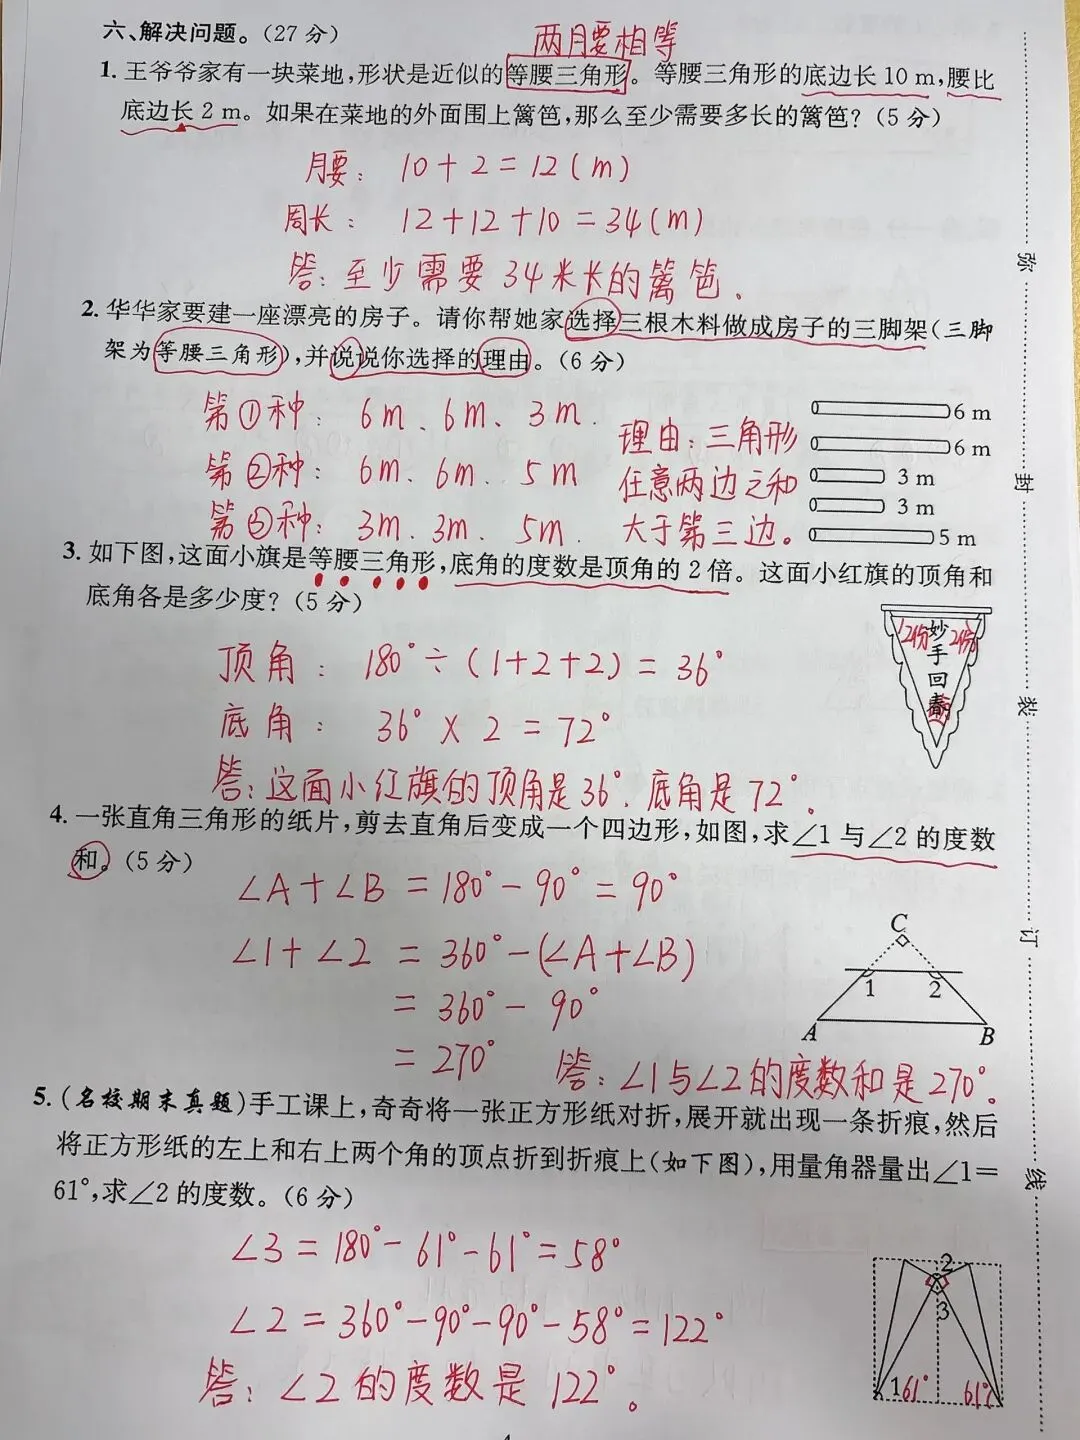 六、解决问题。(27分)
两月要相等
1. 王爷爷家有一块菜地,形状是近似的等腰三角形。等腰三角形的底边长10 m,腰比
底边长2 m。如果在菜地的外面围上篱笆,那么至少需要多长的篱笆?(5分)
腰: 10+2=12(m)
周长: 12+12+10=34(m)
答:至少需要34米长的篱笆.
2. 华华家要建一座漂亮的房子。请你帮她家选择三根木料做成房子的三脚架(三脚
架为等腰三角形),并说说你选择的理由。(6分)
第①种: 6m、6m、3m.
第②种: 6m、6m、5m
第③种: 3m、3m、5m.
理由:三角形
任意两边之和
大于第三边。
6 m
6 m
3 m
3 m
5 m
3. 如下图,这面小旗是等腰三角形,底角的度数是顶角的2倍。这面小红旗的顶角和
底角各是多少度?(5分)
2份 2份
妙手回春
顶角: 180°÷(1+2+2)=36°
底角: 36°×2=72°
答:这面小红旗的顶角是36°.底角是72°.
4. 一张直角三角形的纸片,剪去直角后变成一个四边形,如图,求∠1与∠2的度数
和。(5分)
∠A+∠B=180°-90°=90°
∠1+∠2=360°-(∠A+∠B)
=360°-90°
=270°
答:∠1与∠2的度数和是270°。
C
1 2
A B
5. (名校期末真题)手工课上,奇奇将一张正方形纸对折,展开就出现一条折痕,然后
将正方形纸的左上和右上两个角的顶点折到折痕上(如下图),用量角器量出∠1=
61°,求∠2的度数。(6分)
∠3=180°-61°-61°=58°
∠2=360°-90°-90°-58°=122°
答:∠2的度数是122°。
2
3
1 61° 61°
弥
封
装
订
线